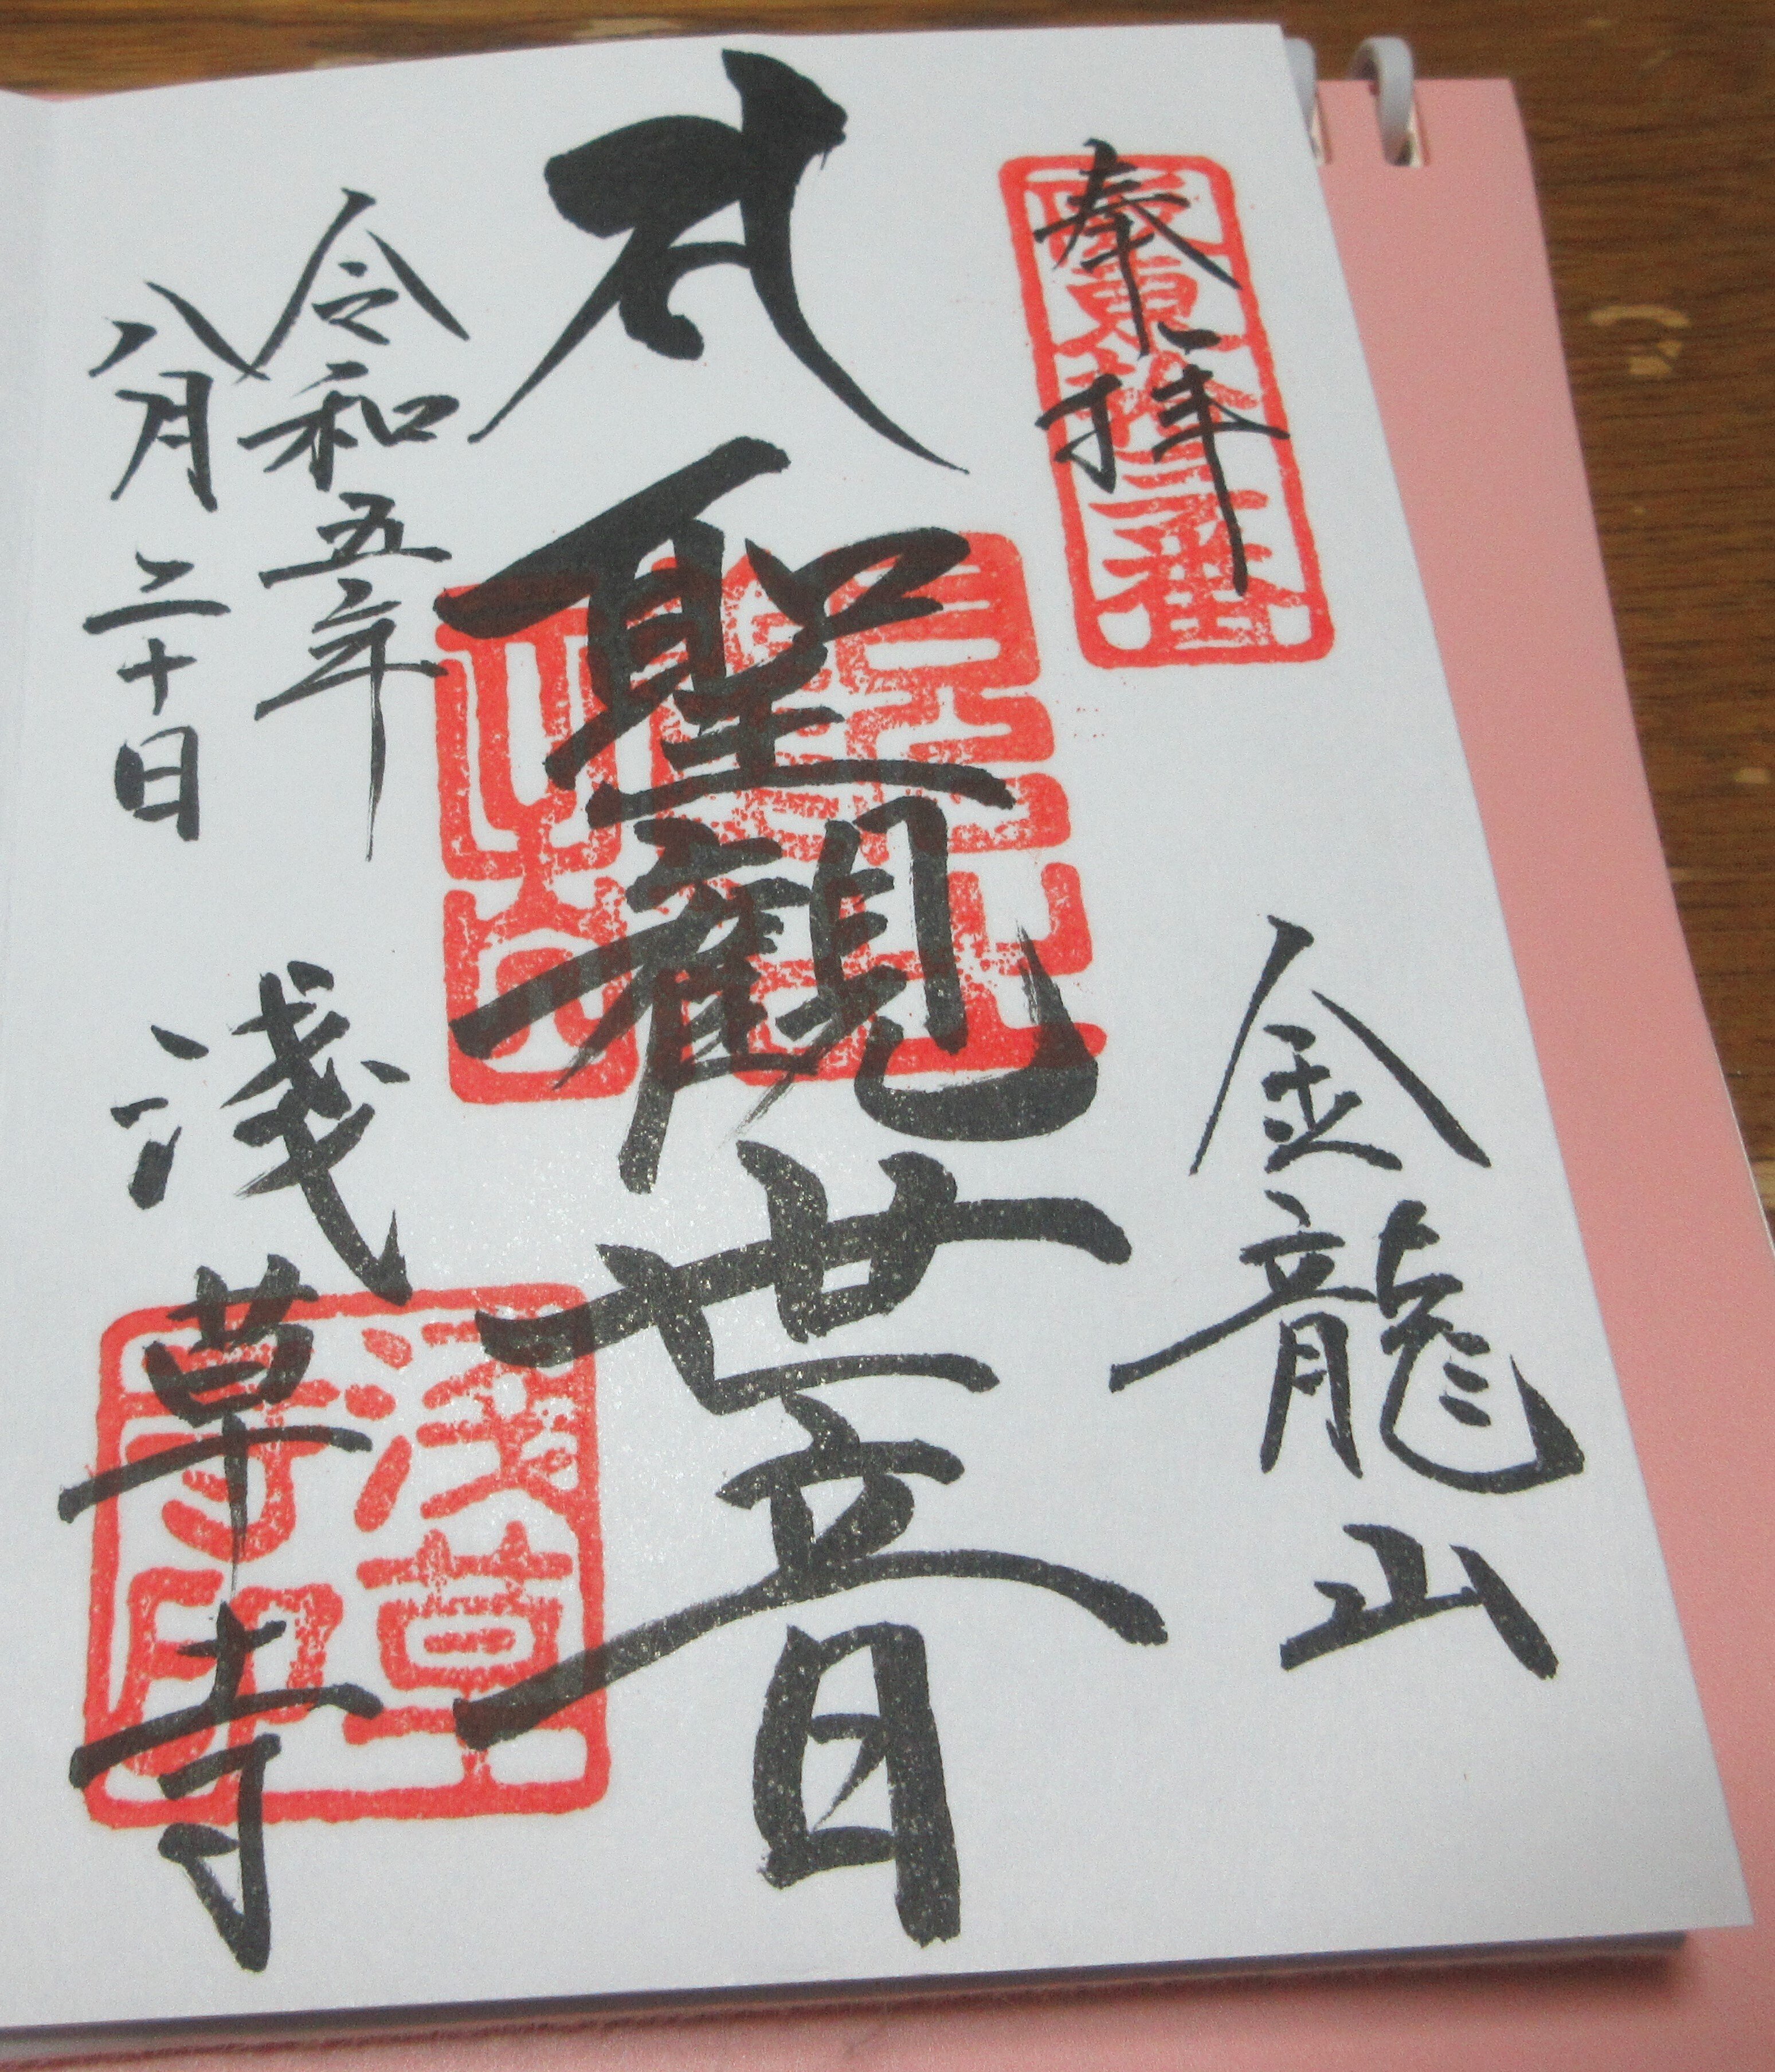 奉拝
坂東拾三番
金龍山
聖観世音
令和五年
八月二十日
浅草寺
浅草寺印